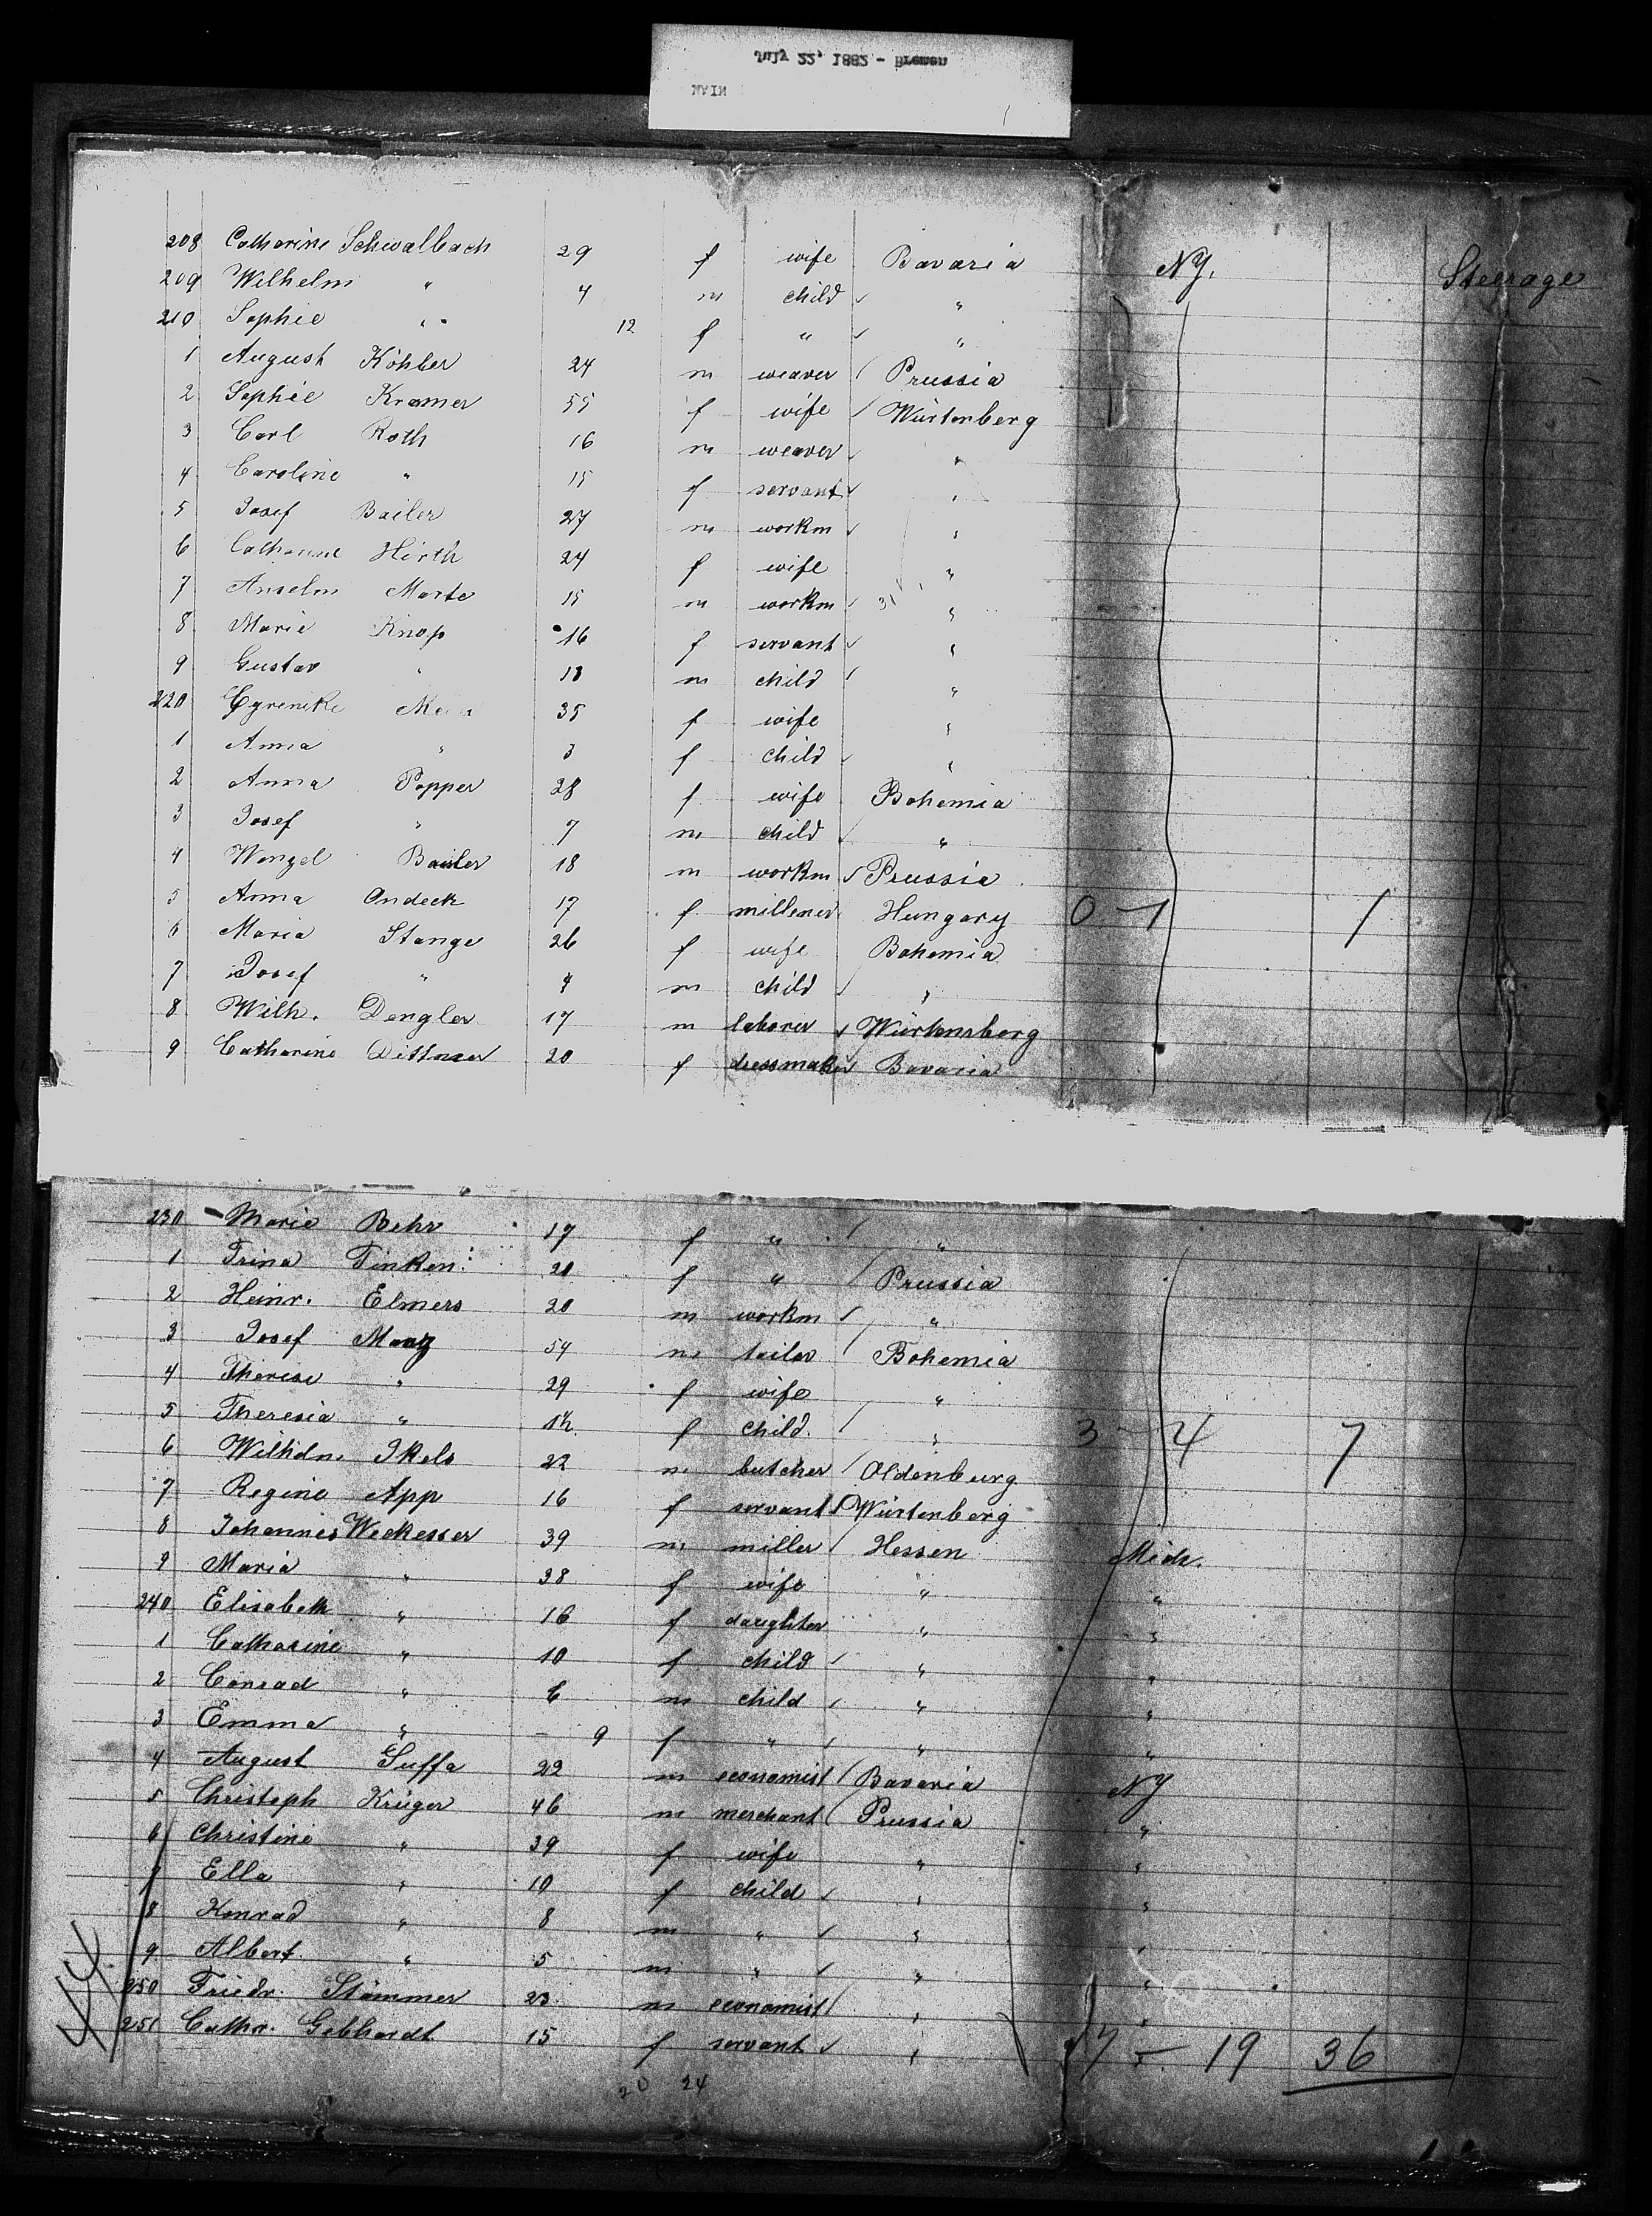 July 22, 1882 - Bremen
MAIN
208 Catharine Schwalbach 29 f wife Bavaria NY. Steerage
209 Wilhelm " 4 m child "
210 Sophie " 12 f " "
1 August Köhler 24 m weaver Prussia
2 Sophie Kramer 55 f wife Würtenberg
3 Carl Roth 16 m weaver "
4 Caroline " 15 f servant "
5 Josef Bailer 27 m workm "
6 Catharine Hirth 24 f wife "
7 Anselm Marte 15 m workm "
8 Marie Knop 16 f servant "
9 Gustav " 18 m child "
220 35 f wife "
1 Anna " 3 f child "
2 Anna Popper 28 f wife Bohemia
3 Josef " 7 m child "
4 Wenzel 18 m workm Prussia
5 Anna Ondeck 17 f millener Hungary 0 - 1 1
6 Maria Stange 26 f wife Bohemia
7 Josef " 4 m child "
8 Wilh. Dengler 17 m laborer Würtenberg
9 Catharine Dittmer 20 f dressmaker Bavaria
230 Marie Behr 17 f " "
1 Trina Tinken 20 f " Prussia
2 Heinr. Elmers 20 m workm "
3 Josef 54 m tailor Bohemia
4 Therese " 29 f wife "
5 Theresia " f child. " 3 - 4 7
6 Wilhelm Ikels 22 m butcher Oldenburg
7 Regine App 16 f servant Würtenberg
8 Johannes Weckesser 39 m miller Hessen Mich.
9 Maria " 38 f wife " "
240 Elisabeth " 16 f daughter " "
1 Catharine " 10 f child " "
2 Conrad " 6 m child " "
3 Emma " 9 f " " "
4 August Suffa 22 m economist Bavaria NY
5 Christoph Krüger 46 m merchant Prussia "
6 Christine " 39 f wife " "
7 Ella " 10 f child " "
8 Konrad " 8 m " " "
9 Albert " 5 m " " "
250 Friedr. Stämmer 23 m economist " "
251 Cathr. Gebhardt 15 f servant " " 17 - 19 36
44
20 24